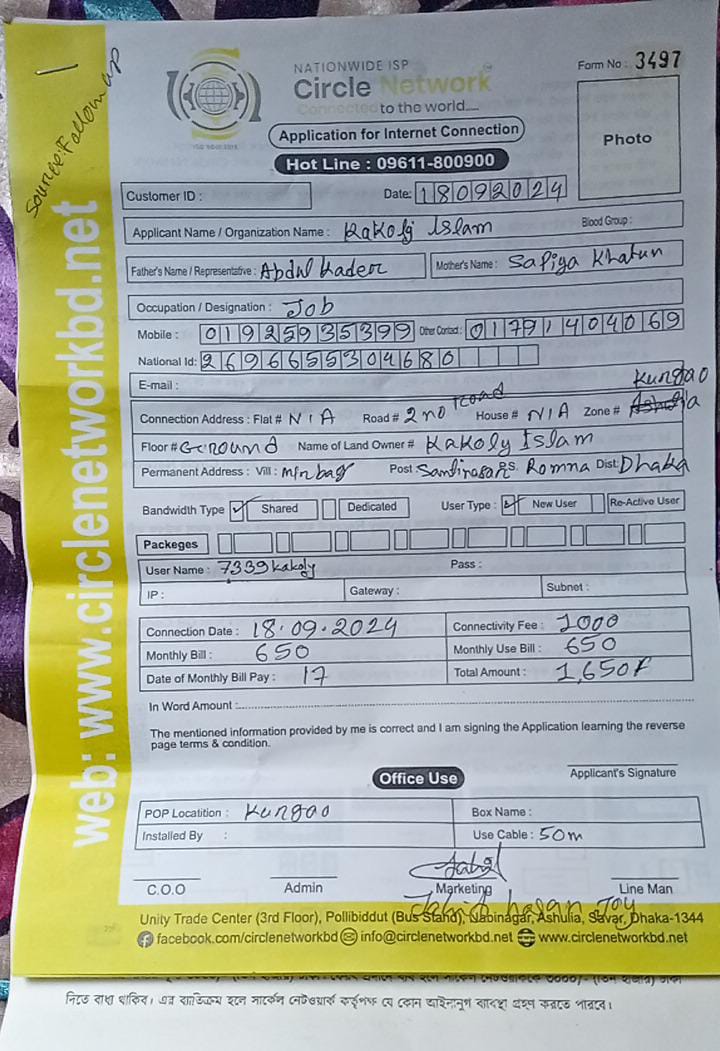 NATIONWIDE ISP
Circle Network
Connected to the world....
Form No : 3497
Source: Follow up
Application for Internet Connection
Hot Line : 09611-800900
Photo
Customer ID :
Date: 18092024
Applicant Name / Organization Name : Kakoly Islam
Blood Group :
Father's Name / Representative : Abdul Kader
Mother's Name : Safiya Khatun
Occupation / Designation : Job
Mobile : 01925935399 Other Contact : 01791404069
National Id: 2696655304680
E-mail :
Kungao
Connection Address : Flat # N/A Road # 2nd Road House # N/A Zone # Ashulia
Floor # Ground Name of Land Owner # Kakoly Islam
Permanent Address : Vill : Mirbag Post : P.S. Romna Dist: Dhaka
Bandwidth Type Shared Dedicated User Type : New User Re-Active User
Packeges
User Name : 7339kakoly Pass :
IP : Gateway : Subnet :
Connection Date : 18.09.2024 Connectivity Fee : 1000
Monthly Bill : 650 Monthly Use Bill : 650
Date of Monthly Bill Pay : 17 Total Amount : 1,650
In Word Amount :
The mentioned information provided by me is correct and I am signing the Application learning the reverse
page terms & condition.
Office Use
Applicant's Signature
POP Locatition : Kungao Box Name :
Installed By : Use Cable : 50m
C.O.O Admin Marketing Line Man
Unity Trade Center (3rd Floor), Pollibiddut (Bus Stand), Nabinagar, Ashulia, Savar, Dhaka-1344
facebook.com/circlenetworkbd info@circlenetworkbd.net www.circlenetworkbd.net
web: www.circlenetworkbd.net
দিতে বাধ্য থাকিব। এর ব্যতিক্রম হলে সার্কেল নেটওয়ার্ক কর্তৃপক্ষ যে কোন আইনানুগ ব্যবস্থা গ্রহন করতে পারবে।